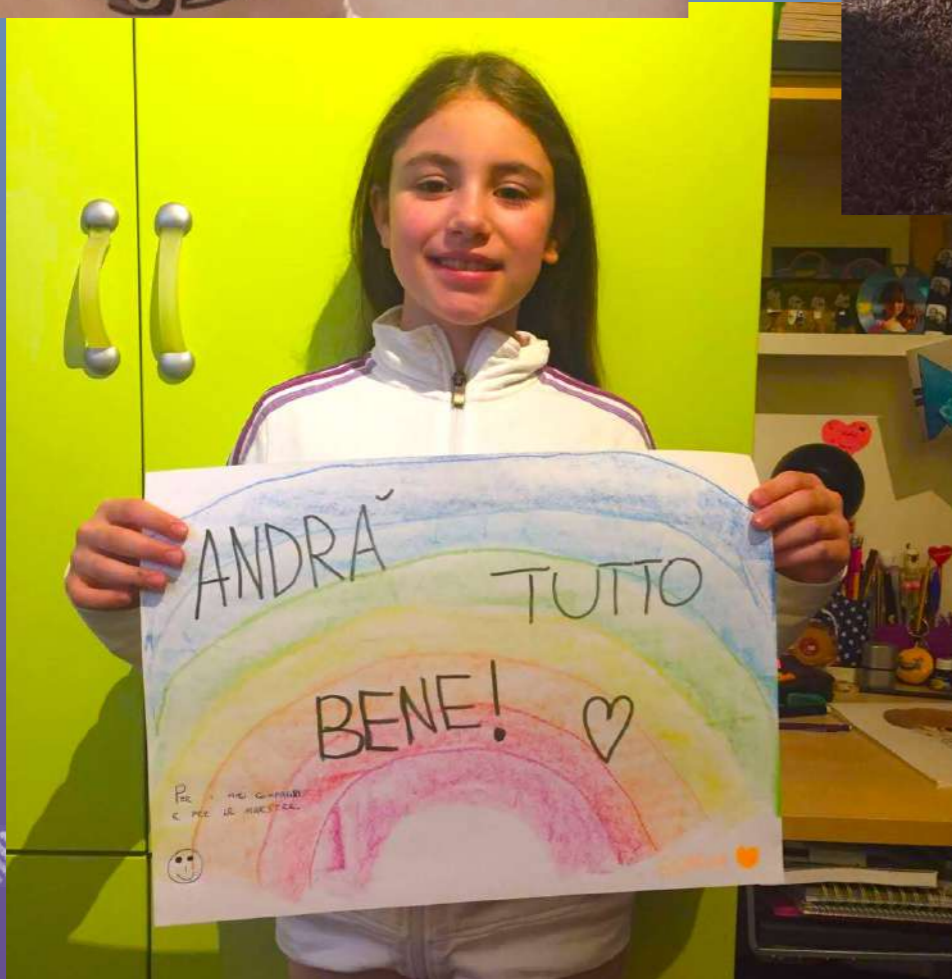 ANDRÃ
TUTTO
BENE!
PER I MIEI COMPAGNI
E PER LE MAESTRE